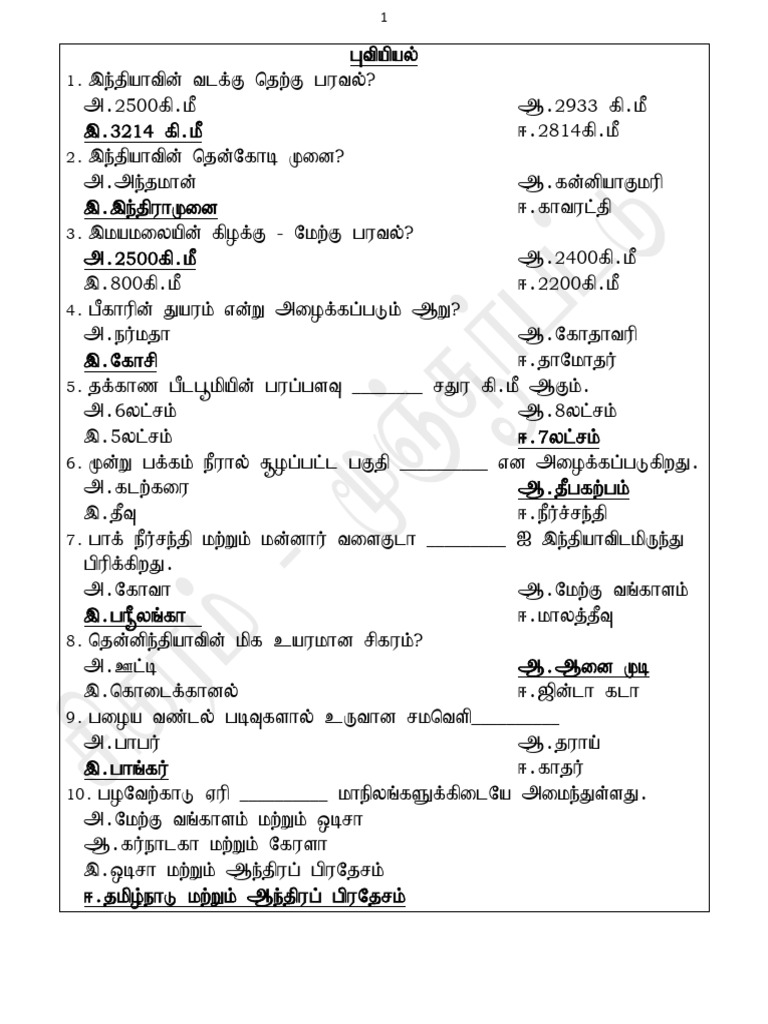 1
புவியியல்
1. இந்தியாவின் வடக்கு தெற்கு பரவல்?
அ.2500கி.மீ ஆ.2933 கி.மீ
இ.3214 கி.மீ ஈ.2814கி.மீ
2. இந்தியாவின் தென்கோடி முனை?
அ.அந்தமான் ஆ.கன்னியாகுமரி
இ.இந்திராமுனை ஈ.காவரட்தி
3. இமயமலையின் கிழக்கு - மேற்கு பரவல்?
அ.2500கி.மீ ஆ.2400கி.மீ
இ.800கி.மீ ஈ.2200கி.மீ
4. பீகாரின் துயரம் என்று அழைக்கப்படும் ஆறு?
அ.நர்மதா ஆ.கோதாவரி
இ.கோசி ஈ.தாமோதர்
5. தக்காண பீடபூமியின் பரப்பளவு _______ சதுர கி.மீ ஆகும்.
அ.6லட்சம் ஆ.8லட்சம்
இ.5லட்சம் ஈ.7லட்சம்
6. மூன்று பக்கம் நீரால் சூழப்பட்ட பகுதி _________ என அழைக்கப்படுகிறது.
அ.கடற்கரை ஆ.தீபகற்பம்
இ.தீவு ஈ.நீர்ச்சந்தி
7. பாக் நீர்சந்தி மற்றும் மன்னார் வளைகுடா ________ ஐ இந்தியாவிடமிருந்து
பிரிக்கிறது.
அ.கோவா ஆ.மேற்கு வங்காளம்
இ.பரீூலங்கா ஈ.மாலத்தீவு
8. தென்னிந்தியாவின் மிக உயரமான சிகரம்?
அ.ஊட்டி ஆ.ஆனை முடி
இ.கொடைக்கானல் ஈ.ஜின்டா கடா
9. பழைய வண்டல் படிவுகளால் உருவான சமவெளி_________
அ.பாபர் ஆ.தராய்
இ.பாங்கர் ஈ.காதர்
10. பழவேற்காடு ஏரி _________ மாநிலங்களுக்கிடையே அமைந்துள்ளது.
அ.மேற்கு வங்காளம் மற்றும் ஒடிசா
ஆ.கர்நாடகா மற்றும் கேரளா
இ.ஒடிசா மற்றும் ஆந்திரப் பிரதேசம்
ஈ.தமிழ்நாடு மற்றும் ஆந்திரப் பிரதேசம்
சிகரம் -